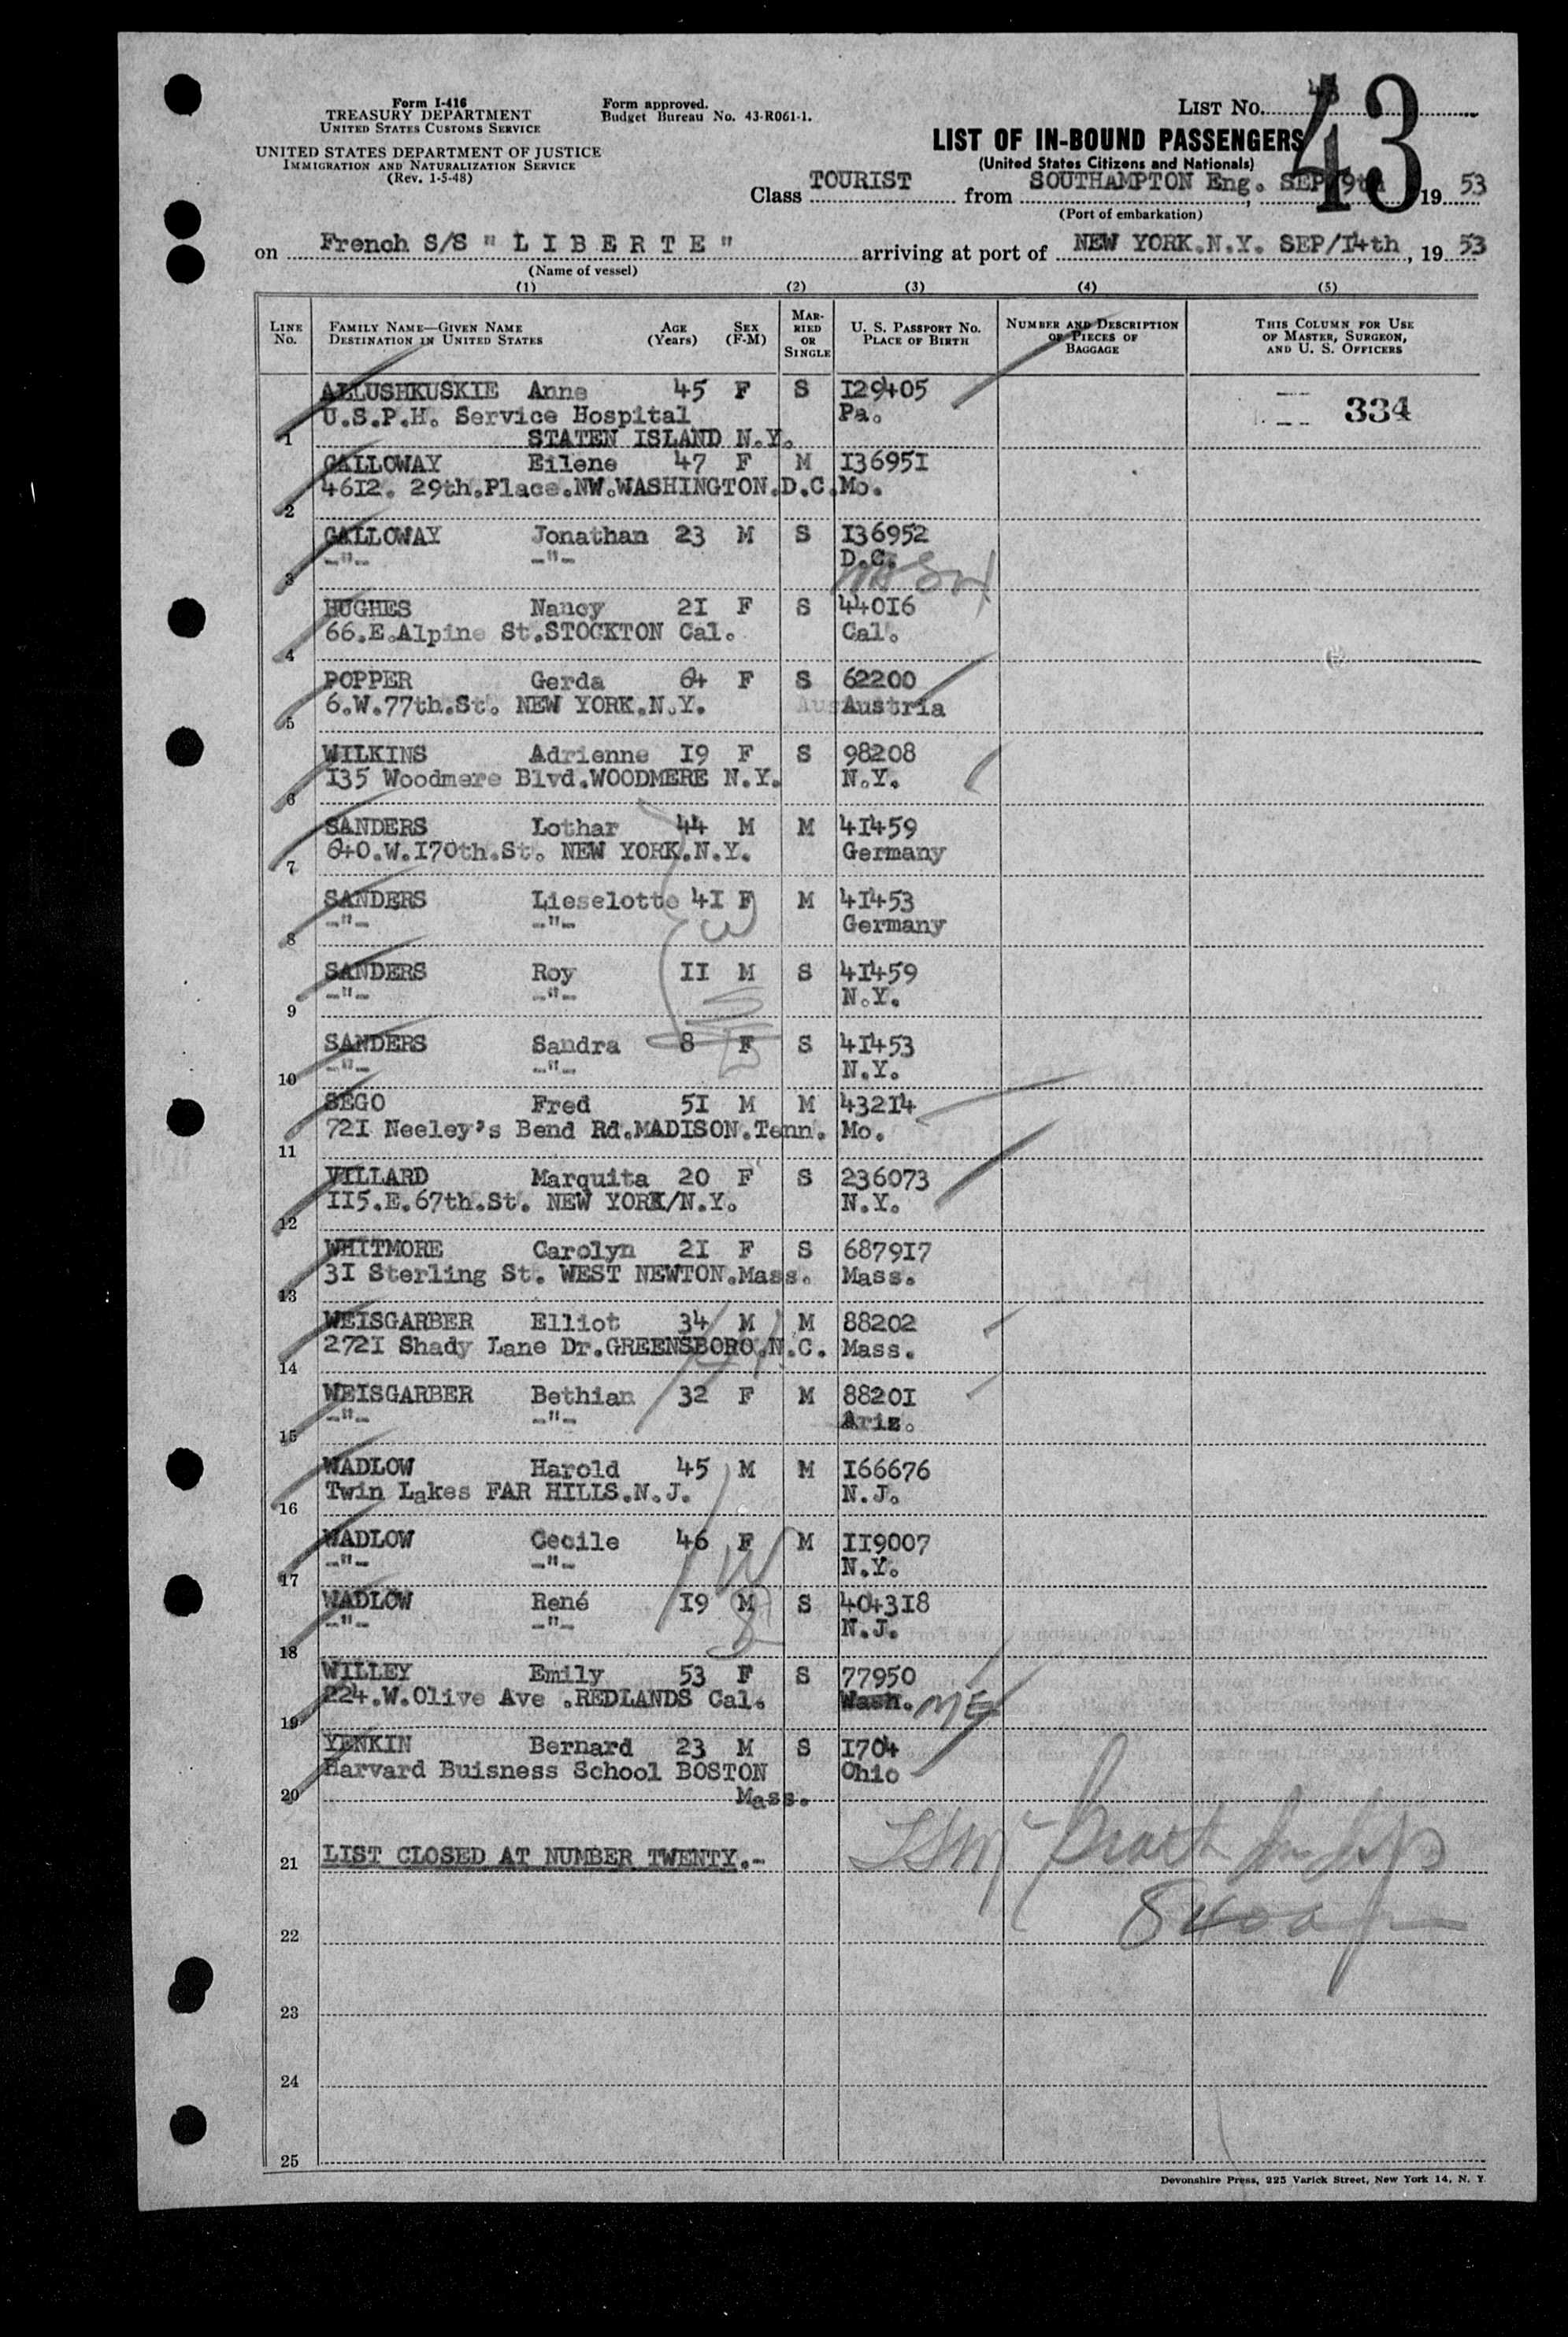 Form I-416
TREASURY DEPARTMENT
UNITED STATES CUSTOMS SERVICE
UNITED STATES DEPARTMENT OF JUSTICE
IMMIGRATION AND NATURALIZATION SERVICE
(Rev. 1-5-48)
Form approved.
Budget Bureau No. 43-R061-1.
LIST No. 43
43
LIST OF IN-BOUND PASSENGERS
(United States Citizens and Nationals)
Class TOURIST from SOUTHAMPTON Eng. SEP/9th 19 53
(Port of embarkation)
on French S/S " L I B E R T E " arriving at port of NEW YORK.N.Y. SEP/14th, 19 53
(Name of vessel)
(1) (2) (3) (4) (5)
LINE No. FAMILY NAME—GIVEN NAME DESTINATION IN UNITED STATES AGE (Years) SEX (F-M) MARRIED OR SINGLE U. S. PASSPORT No. PLACE OF BIRTH NUMBER AND DESCRIPTION OF PIECES OF BAGGAGE THIS COLUMN FOR USE OF MASTER, SURGEON, AND U. S. OFFICERS
ALLUSHKUSKIE Anne 45 F S I29405
U.S.P.H. Service Hospital Pa. 334
1 STATEN ISLAND N.Y.
GALLOWAY Eilene 47 F M I3695I
46I2. 29th.Place.NW.WASHINGTON.D.C.Mo.
2
GALLOWAY Jonathan 23 M S I36952
-"- -"- D.C.
3
HUGHES Nancy 2I F S 44OI6
66.E.Alpine St.STOCKTON Cal. Cal.
4
POPPER Gerda 64 F S 62200
6.W.77th.St. NEW YORK.N.Y. Austria
5
WILKINS Adrienne I9 F S 98208
I35 Woodmere Blvd.WOODMERE N.Y. N.Y.
6
SANDERS Lothar 44 M M 4I459
640.W.I70th.St. NEW YORK.N.Y. Germany
7
SANDERS Lieselotte 4I F M 4I453
-"- -"- Germany
8
SANDERS Roy II M S 4I459
-"- -"- N.Y.
9
SANDERS Sandra 8 F S 4I453
-"- -"- N.Y.
10
SEGO Fred 5I M M 432I4
72I Neeley's Bend Rd.MADISON.Tenn. Mo.
11
VILLARD Marquita 20 F S 236073
II5.E.67th.St. NEW YORK/N.Y. N.Y.
12
WHITMORE Carolyn 2I F S 6879I7
3I Sterling St. WEST NEWTON.Mass. Mass.
13
WEISGARBER Elliot 34 M M 88202
272I Shady Lane Dr.GREENSBORO.N.C. Mass.
14
WEISGARBER Bethian 32 F M 8820I
-"- -"- Ariz.
15
WADLOW Harold 45 M M I66676
Twin Lakes FAR HILLS.N.J. N.J.
16
WADLOW Cecile 46 F M II9007
-"- -"- N.Y.
17
WADLOW René I9 M S 4043I8
-"- -"- N.J.
18
WILLEY Emily 53 F S 77950
224.W.Olive Ave .REDLANDS Cal. Wash.
19
YENKIN Bernard 23 M S I704
Harvard Buisness School BOSTON Ohio
20 Mass.
21 LIST CLOSED AT NUMBER TWENTY.-
22
23
24
25
Devonshire Press, 225 Varick Street, New York 14, N. Y.